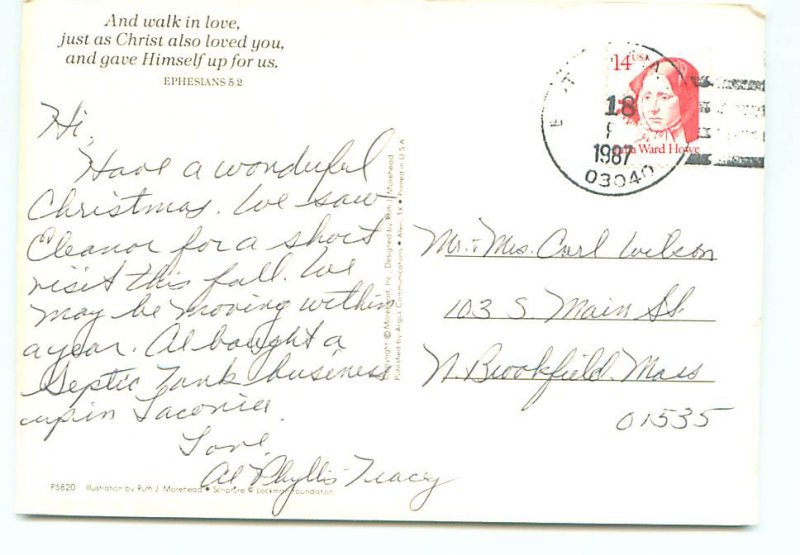 And walk in love,
just as Christ also loved you,
and gave Himself up for us.
EPHESIANS 5:2
Hi,
Have a wonderful
Christmas. We saw
Eleanor for a short
visit this fall. We
may be moving within
a year. Al bought a
Septic Tank business
up in Laconia.
Love,
Al Phyllis Tracey
P5820 Illustration by Ruth J. Morehead • Scripture © Lockman Foundation
Copyright © Morehead, Inc. Designed by Ruth J. Morehead
Published by Argus Communications • Allen, TX • Printed in U.S.A.
14 USA
Ward Howe
18
1987
03040
Mr. + Mrs. Carl Wilson
103 S. Main St.
N. Brookfield, Mass
01535